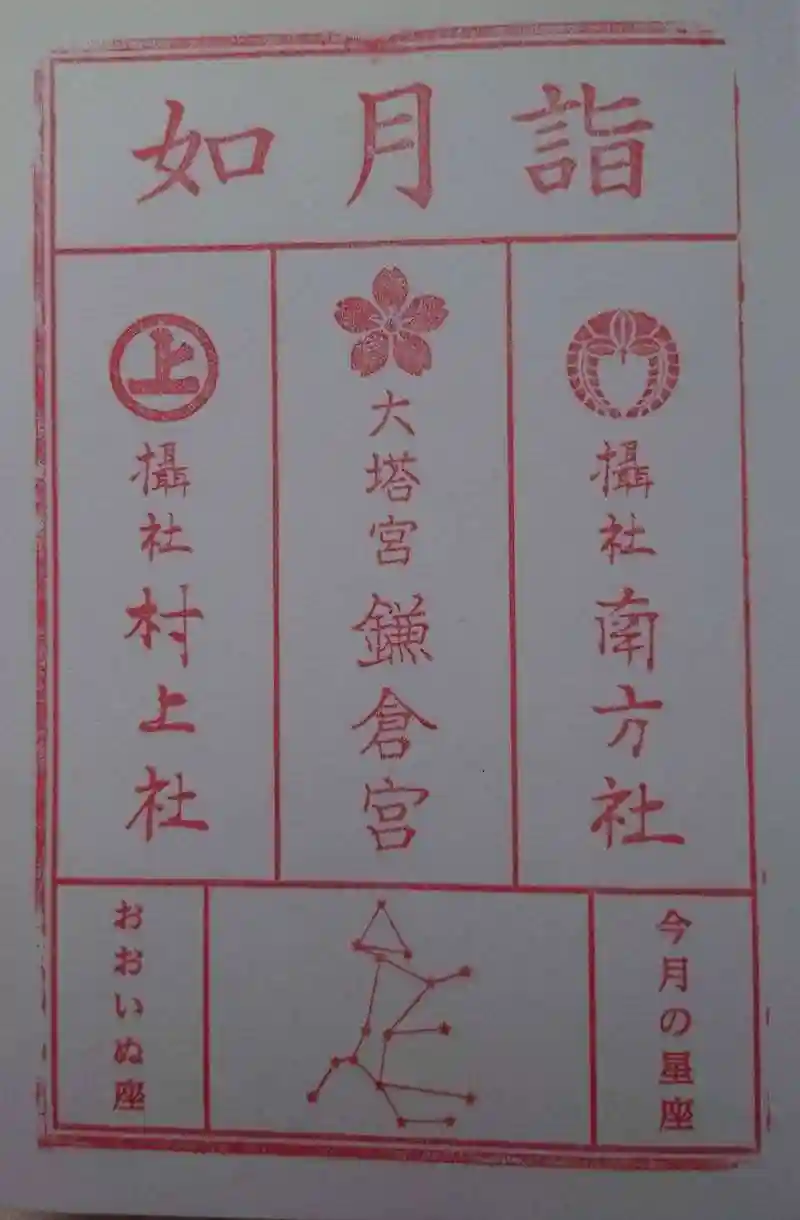 如月詣
攝社 南方社
大塔宮 鎌倉宮
上
攝社 村上社
今月の星座
おおいぬ座